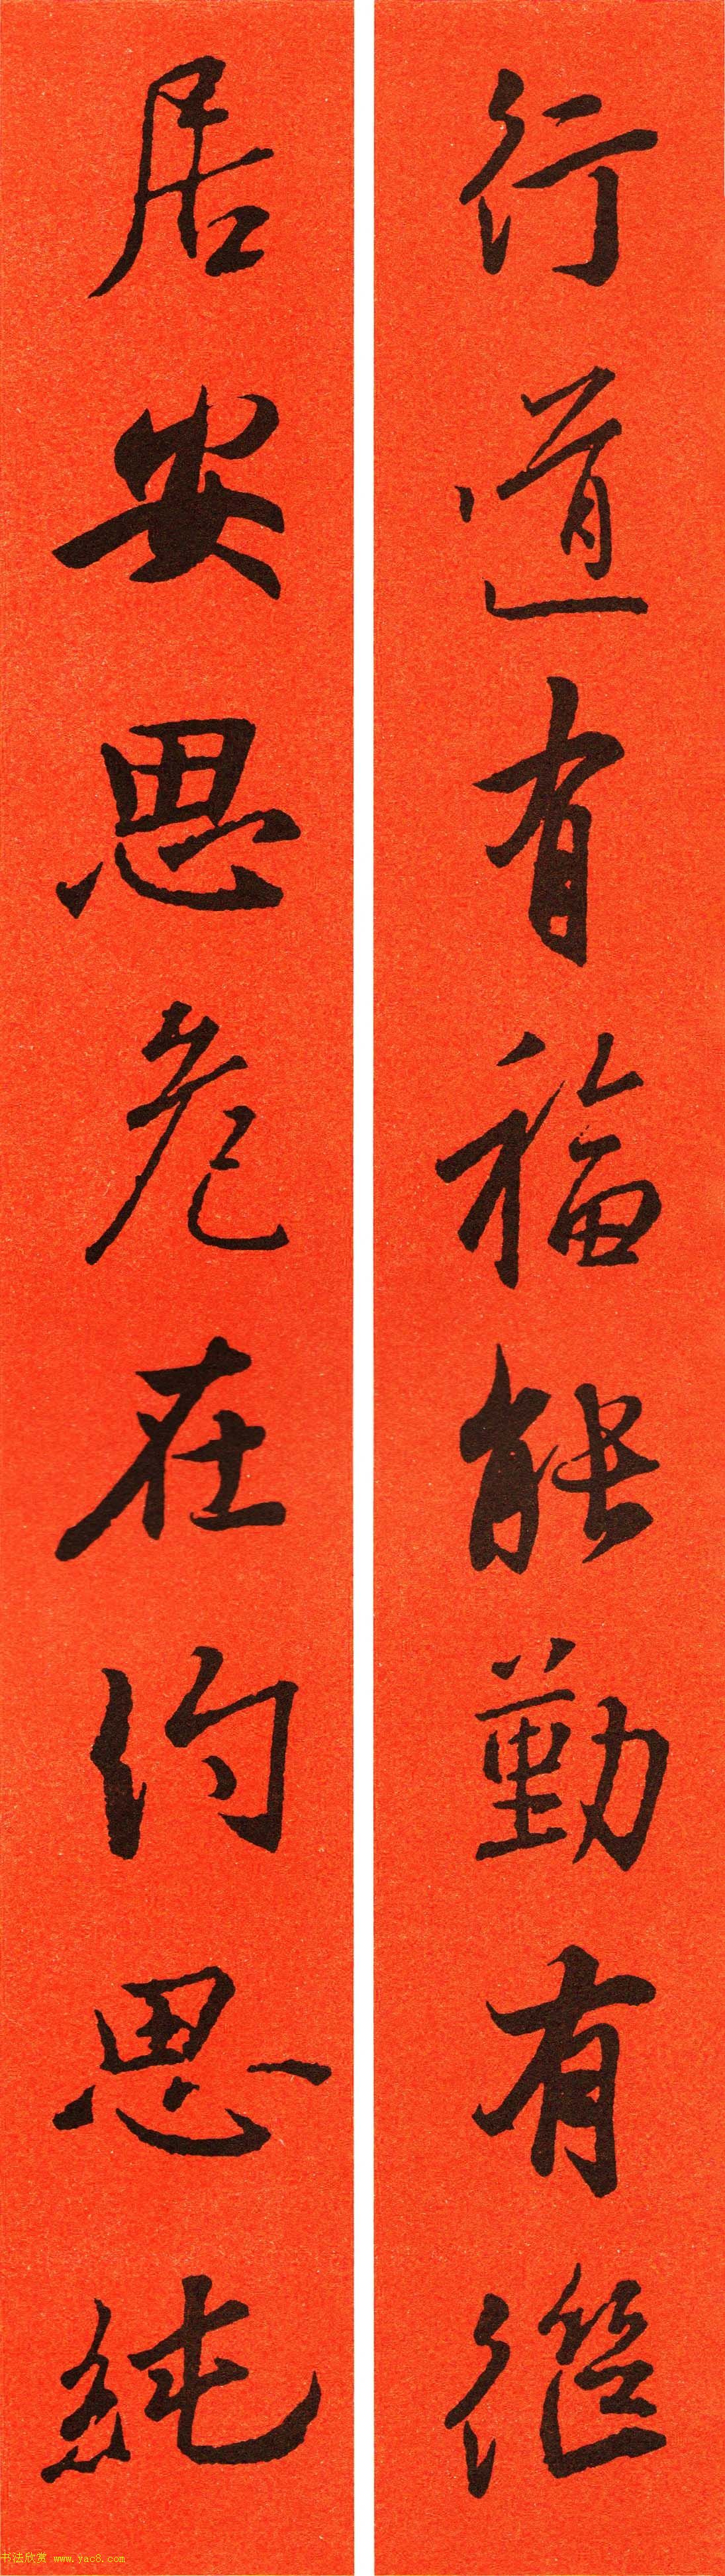 行道有福能勤有繼
居安思危在約思純
书法欣赏 www.yac8.com